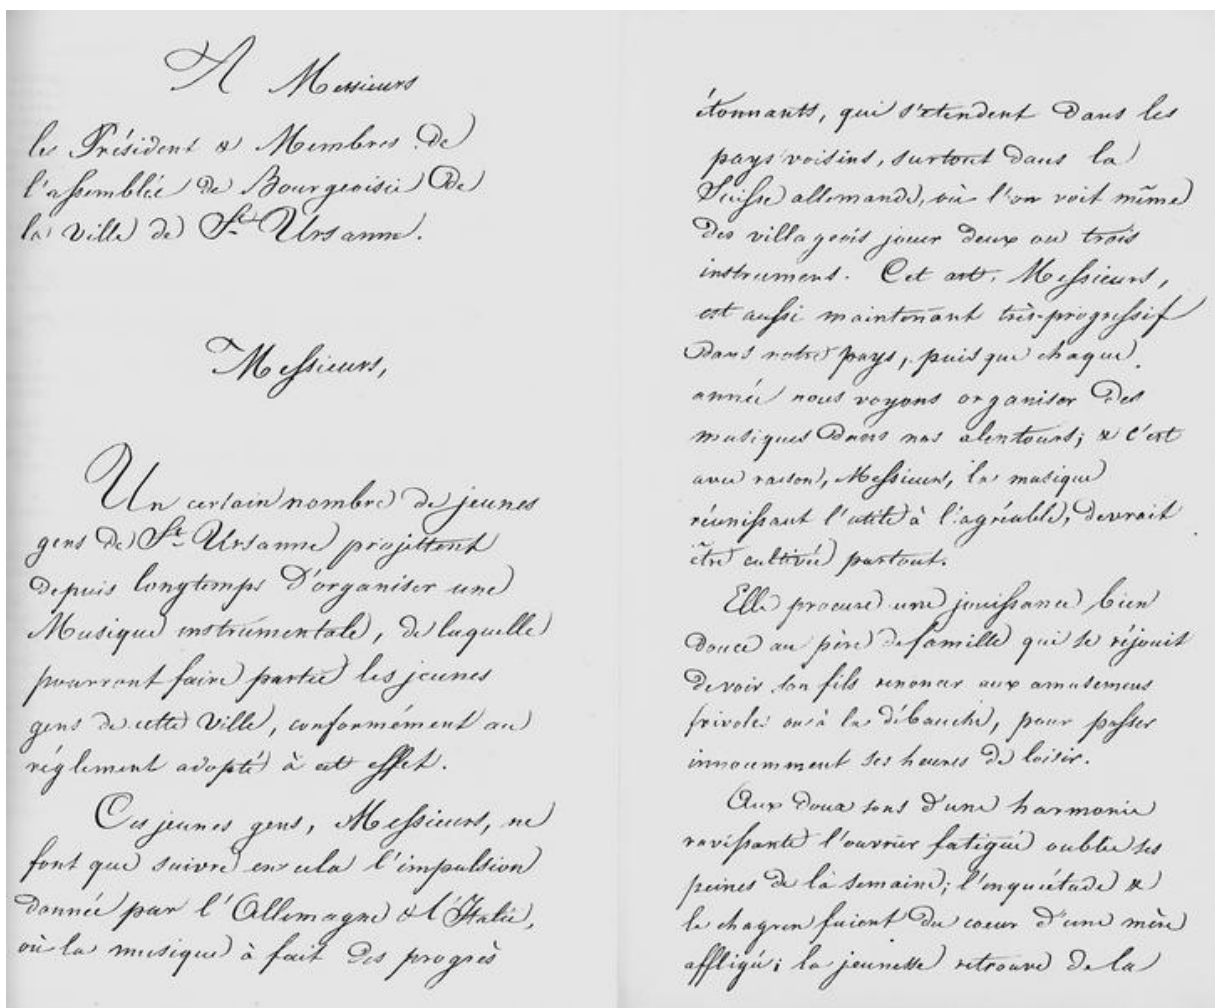 A Messieurs
les Président & Membres de
l'assemblée de Bourgeoisie de
la ville de St. Ursanne.
Messieurs,
Un certain nombre de jeunes
gens de St. Ursanne projettent
depuis longtemps d'organiser une
Musique instrumentale, de laquelle
pourront faire partie les jeunes
gens de cette ville, conformément au
réglement adopté à cet effet.
Ces jeunes gens, Messieurs, ne
font que suivre en cela l'impulsion
donnée par l'Allemagne & l'Italie,
où la musique à fait des progrès
étonnants, qui s'étendent dans les
pays voisins, surtout dans la
Suisse allemande, où l'on voit même
des villageois jouer deux ou trois
instrument. Cet art, Messieurs,
est aussi maintenant très-progressif
dans notre pays, puisque chaque
année nous voyons organiser des
musiques dans nos alentours; & c'est
avec raison, Messieurs, la musique
réunissant l'utile à l'agréable, devrait
être cultivée partout.
Elle procure une jouissance bien
douce au père de famille qui se réjouit
de voir son fils renoncer aux amusemens
frivoles ou à la débauche, pour passer
innocemment ses heures de loisir.
Aux doux sons d'une harmonie
ravissante l'ouvrier fatigué oublie ses
peines de la semaine; l'inquiétude &
le chagrin fuient du coeur d'une mère
affligée; la jeunesse retrouve de la